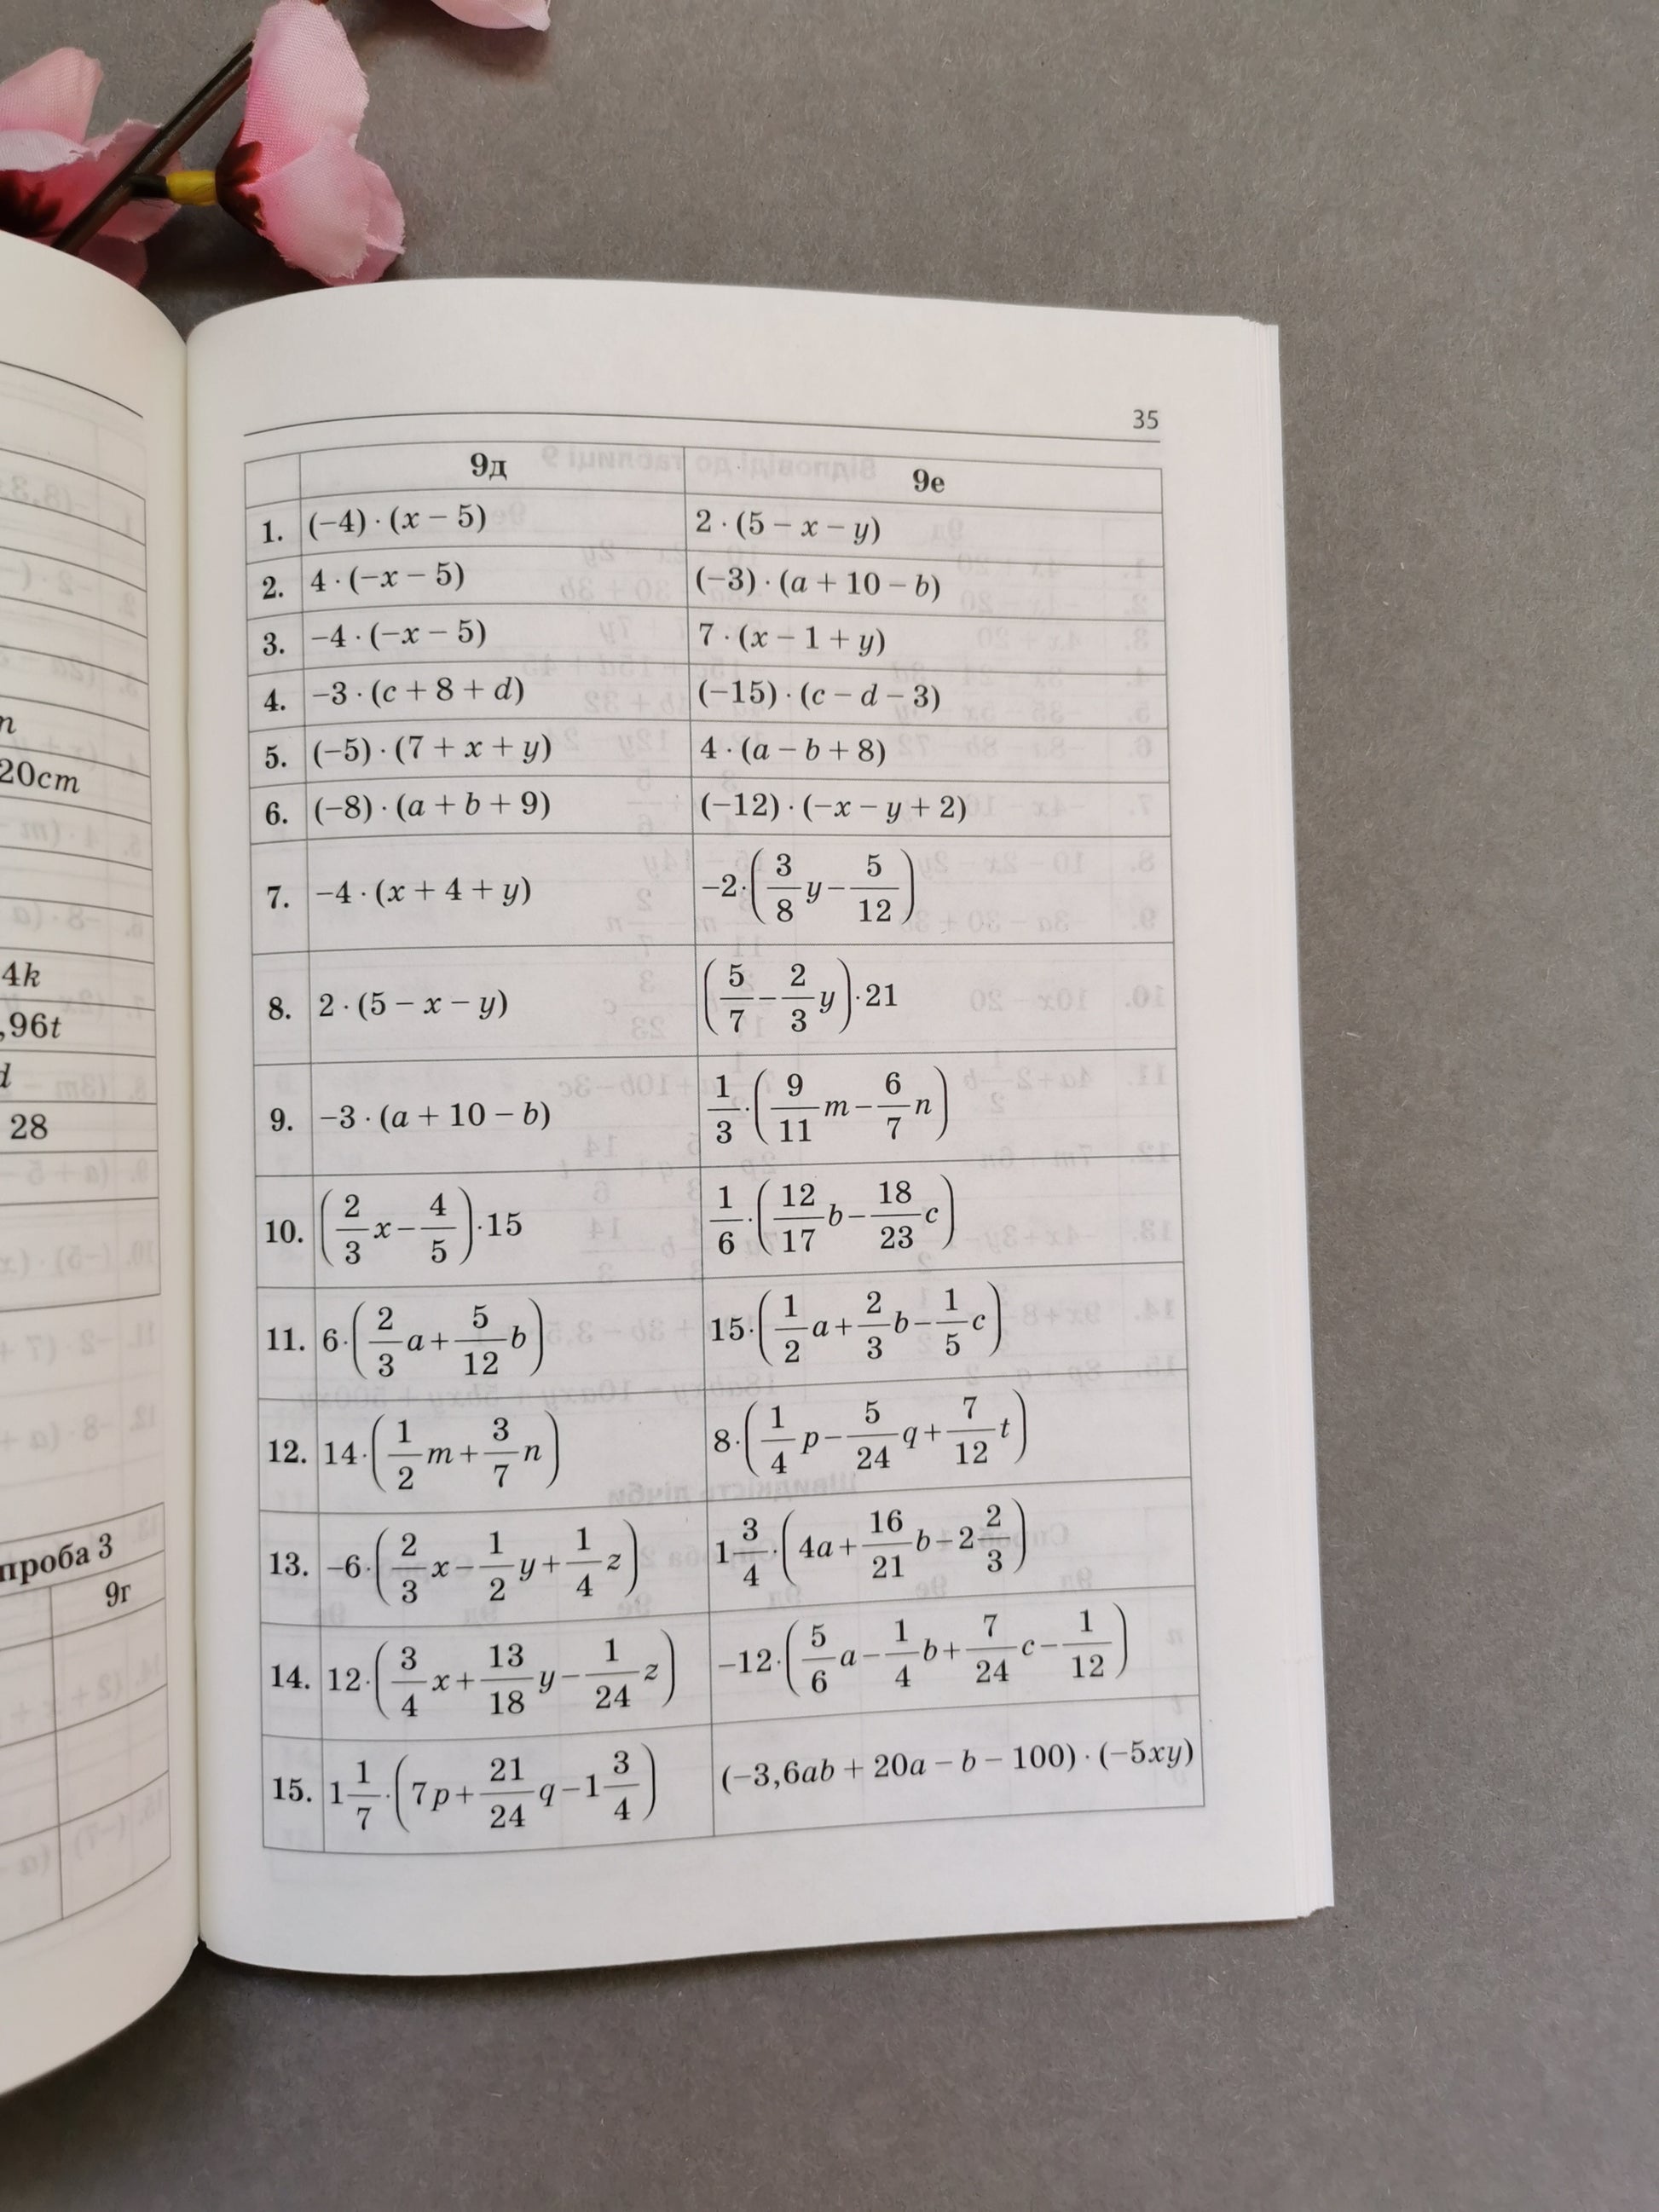 n
20cm
4k
,96t
d
28
проба 3
9г
35
9д 9е
1. (−4) · (x − 5) 2 · (5 − x − y)
2. 4 · (−x − 5) (−3) · (a + 10 − b)
3. −4 · (−x − 5) 7 · (x − 1 + y)
4. −3 · (c + 8 + d) (−15) · (c − d − 3)
5. (−5) · (7 + x + y) 4 · (a − b + 8)
6. (−8) · (a + b + 9) (−12) · (−x − y + 2)
7. −4 · (x + 4 + y) −2·(3/8 y − 5/12)
8. 2 · (5 − x − y) (5/7 − 2/3 y)·21
9. −3 · (a + 10 − b) 1/3·(9/11 m − 6/7 n)
10. (2/3 x − 4/5)·15 1/6·(12/17 b − 18/23 c)
11. 6·(2/3 a + 5/12 b) 15·(1/2 a + 2/3 b − 1/5 c)
12. 14·(1/2 m + 3/7 n) 8·(1/4 p − 5/24 q + 7/12 t)
13. −6·(2/3 x − 1/2 y + 1/4 z) 1 3/4·(4a + 16/21 b − 2 2/3)
14. 12·(3/4 x + 13/18 y − 1/24 z) −12·(5/6 a − 1/4 b + 7/24 c − 1/12)
15. 1 1/7·(7p + 21/24 q − 1 3/4) (−3,6ab + 20a − b − 100) · (−5xy)